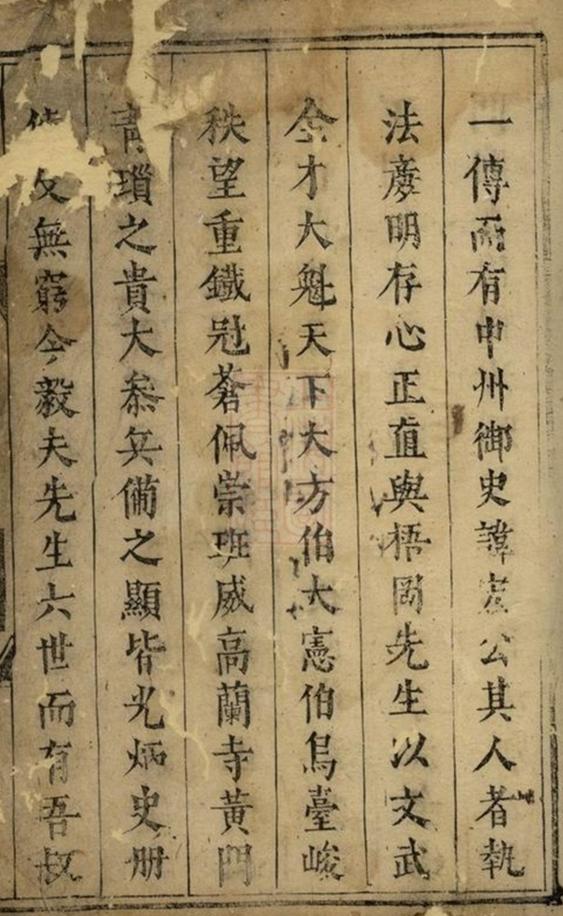 一傳而有中州御史諱公其人者執
法廉明存心正直與梧岡先生以文武
全才大魁天下大方伯大憲伯烏臺峻
秩望重鐵冠蒼佩崇班威高蘭寺黃門
青瑣之貴大叅兵備之顯皆光炳史册
無窮今毅夫先生六世而有吾叔